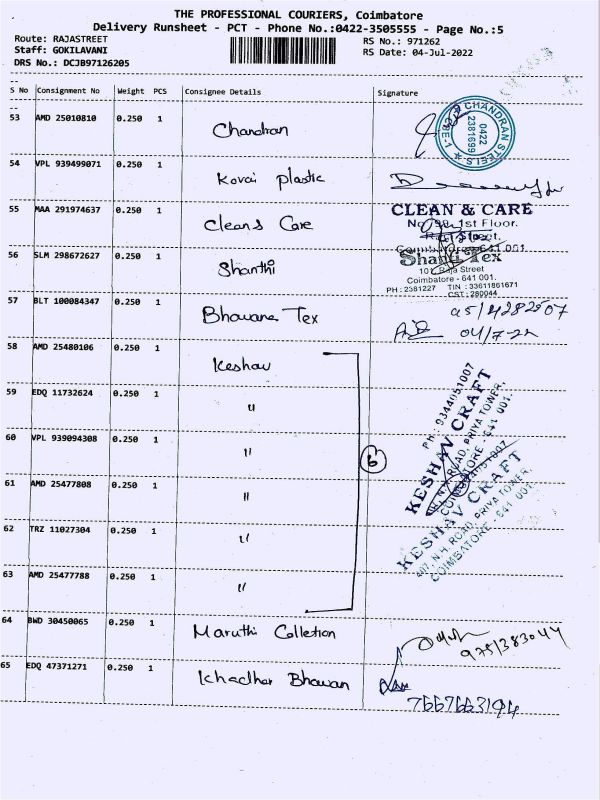 THE PROFESSIONAL COURIERS, Coimbatore
Delivery Runsheet - PCT - Phone No.:0422-3505555 - Page No.:5
Route: RAJASTREET RS No.: 971262
Staff: GOKILAVANI RS Date: 04-Jul-2022
DRS No.: DCJB97126205
S No Consignment No Weight PCS Consignee Details Signature
53 AMD 25010810 0.250 1 Chandran
CHANDRAN STEELS 0422 2381699
54 VPL 939499071 0.250 1 Kovai plastic
55 MAA 291974637 0.250 1 Clean & Care
CLEAN & CARE
1st Floor.
56 SLM 298672627 0.250 1 Shanthi
Shanti Tex
101 Raja Street
Coimbatore - 641 001.
PH : 2381227 TIN : 33611861671
CST : 280044
57 BLT 100084347 0.250 1 Bhavana Tex
04/7-22
58 AMD 25480106 0.250 1 Keshav
59 EDQ 11732624 0.250 1 "
60 VPL 939094308 0.250 1 "
6
61 AMD 25477808 0.250 1 "
62 TRZ 11027304 0.250 1 "
63 AMD 25477788 0.250 1 "
PH : 9344051007
KESHAV CRAFT
N.H. ROAD, PRIYA TOWER,
COIMBATORE - 641 001.
KESHAV CRAFT
407, N.H. ROAD, PRIYA TOWER,
COIMBATORE - 641 001.
64 BWD 30450065 0.250 1 Maruthi Colletion
9751383044
65 EDQ 47371271 0.250 1 Khadhar Bhawan
7667663194